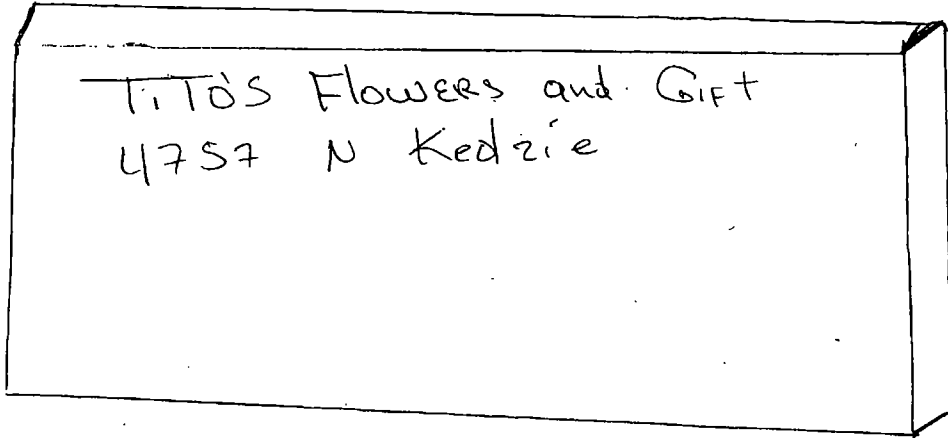 TiTO'S FlowERS and GiFt
4757 N Kedzie